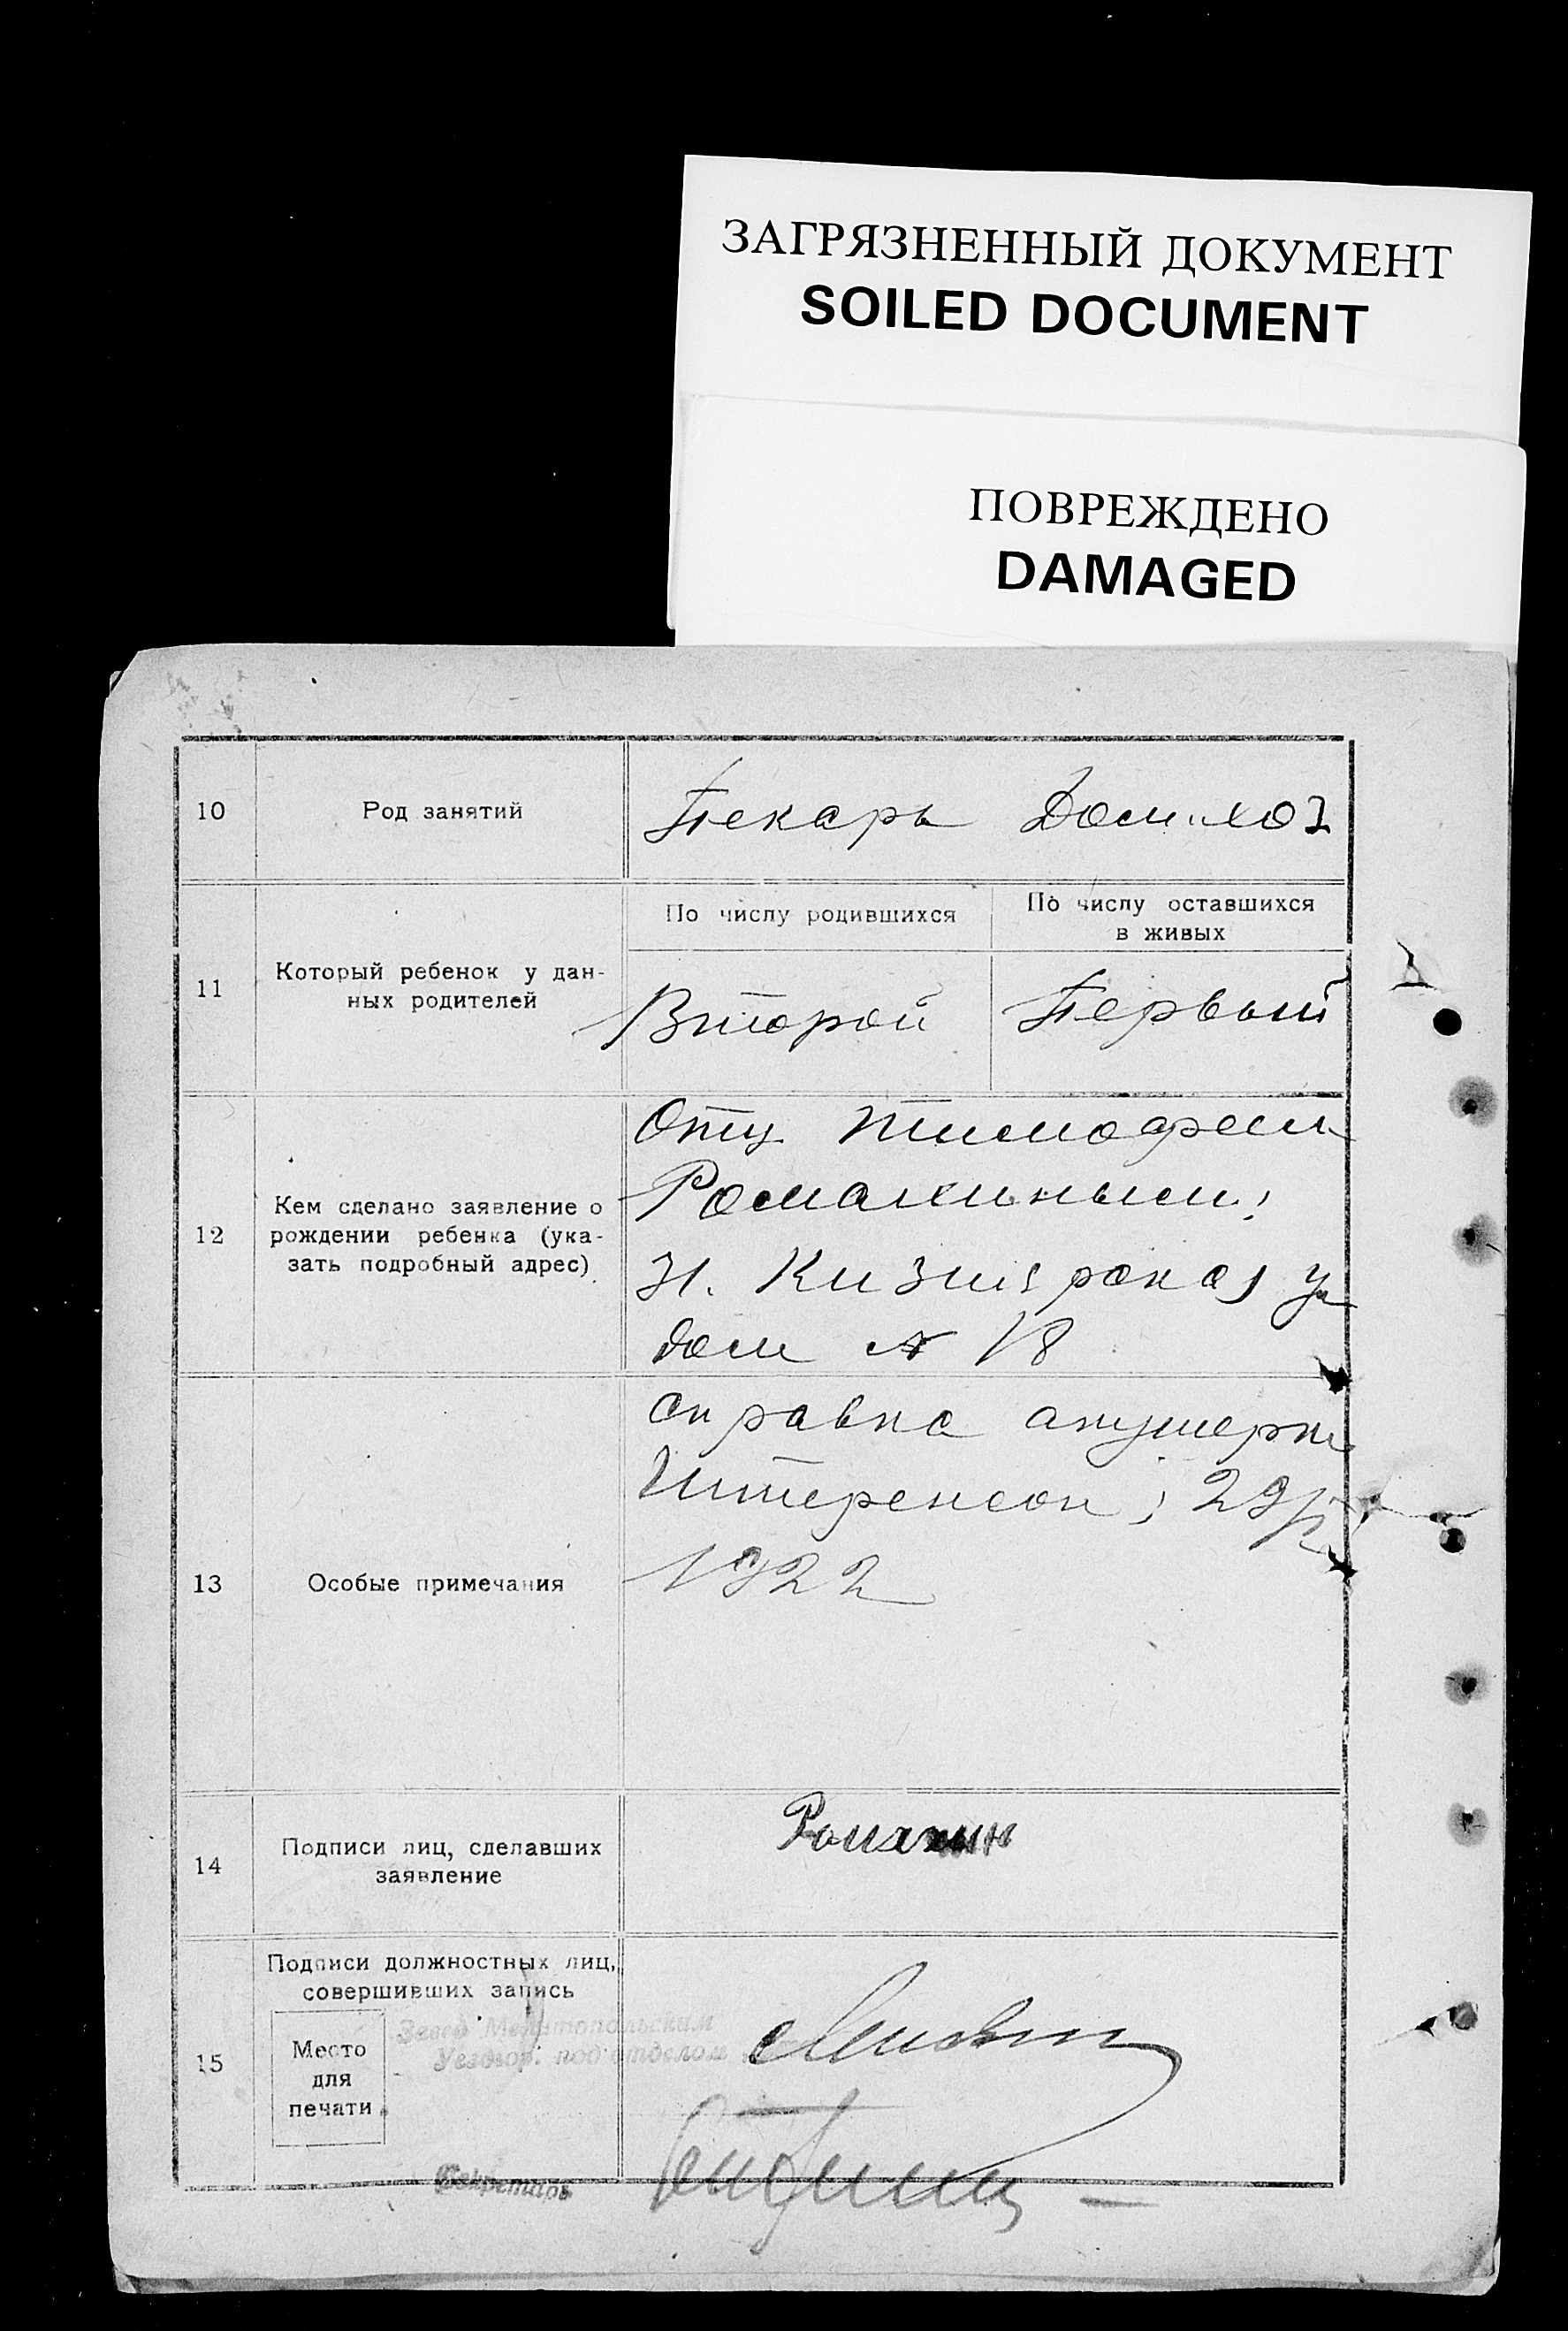 ЗАГРЯЗНЕННЫЙ ДОКУМЕНТ
SOILED DOCUMENT
ПОВРЕЖДЕНО
DAMAGED
10 Род занятий Пекарь Дом. хоз
11 Который ребенок у дан-
ных родителей
По числу родившихся
По числу оставшихся
в живых
Второй Первый
12 Кем сделано заявление о
рождении ребенка (ука-
зать подробный адрес)
Отц Тимофеем
Ромахиным;
Н. Кизиярская ул
дом № 18
13 Особые примечания
Справка акушерки
1922
14 Подписи лиц, сделавших
заявление
Ромахин
15 Подписи должностных лиц,
совершивших запись
Место
для
печати
Завед Мелитопольским
подотделом
Секретарь